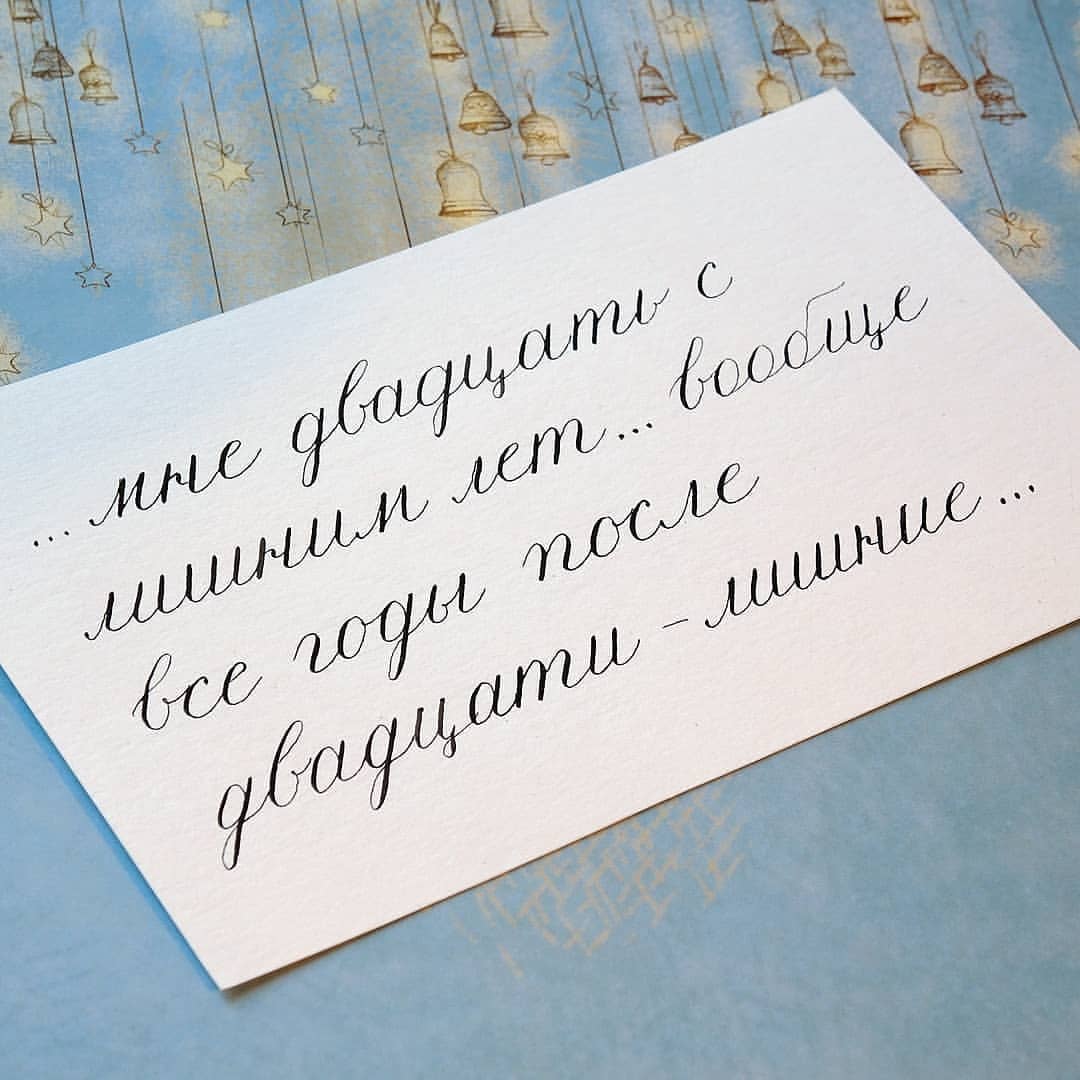 ...мне двадцать с
лишним лет... вообще
все годы после
двадцати - лишние...